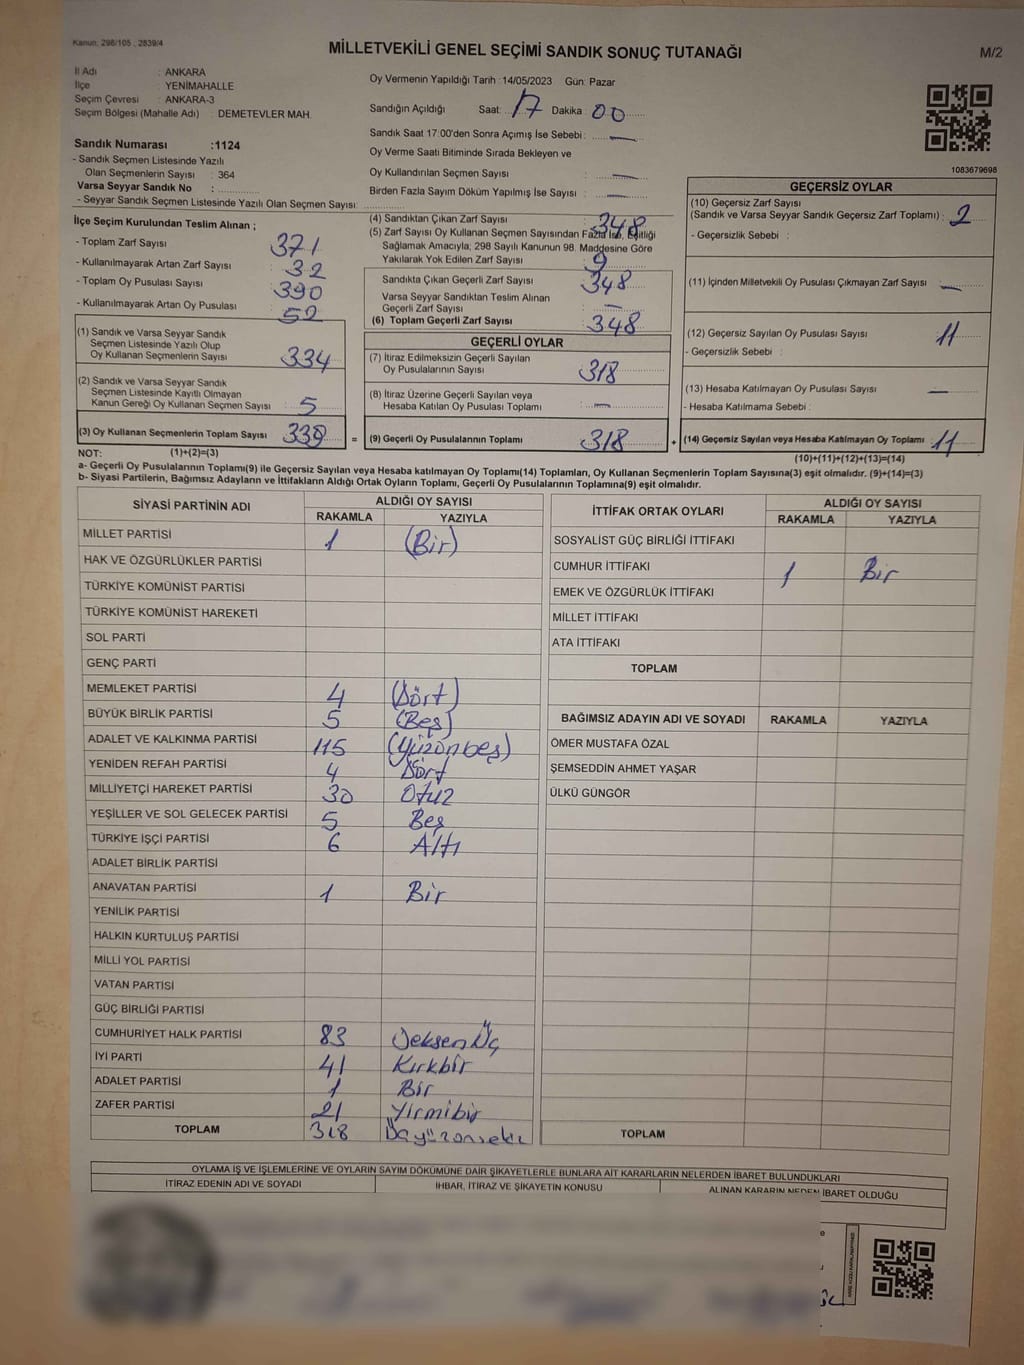 Kanun: 298/105 ; 2839/4
MİLLETVEKİLİ GENEL SEÇİMİ SANDIK SONUÇ TUTANAĞI
M/2
İl Adı : ANKARA
İlçe : YENİMAHALLE
Seçim Çevresi : ANKARA-3
Seçim Bölgesi (Mahalle Adı) : DEMETEVLER MAH.
Sandık Numarası :1124
- Sandık Seçmen Listesinde Yazılı
Olan Seçmenlerin Sayısı : 364
Varsa Seyyar Sandık No :
- Seyyar Sandık Seçmen Listesinde Yazılı Olan Seçmen Sayısı:
Oy Vermenin Yapıldığı Tarih :14/05/2023 Gün: Pazar
Sandığın Açıldığı Saat: 17 Dakika: 00
Sandık Saat 17:00'den Sonra Açımış İse Sebebi : —
Oy Verme Saati Bitiminde Sırada Bekleyen ve
Oy Kullandırılan Seçmen Sayısı : —
Birden Fazla Sayım Döküm Yapılmış İse Sayısı : —
1083679698
İlçe Seçim Kurulundan Teslim Alınan ;
- Toplam Zarf Sayısı : 371
- Kullanılmayarak Artan Zarf Sayısı : 32
- Toplam Oy Pusulası Sayısı : 390
- Kullanılmayarak Artan Oy Pusulası : 52
(1) Sandık ve Varsa Seyyar Sandık
Seçmen Listesinde Yazılı Olup
Oy Kullanan Seçmenlerin Sayısı : 334
(2) Sandık ve Varsa Seyyar Sandık
Seçmen Listesinde Kayıtlı Olmayan
Kanun Gereği Oy Kullanan Seçmen Sayısı : 5
(3) Oy Kullanan Seçmenlerin Toplam Sayısı : 339
(1)+(2)=(3)
(4) Sandıktan Çıkan Zarf Sayısı : 348
(5) Zarf Sayısı Oy Kullanan Seçmen Sayısından Fazla İse, Eşitliği
Sağlamak Amacıyla; 298 Sayılı Kanunun 98. Maddesine Göre
Yakılarak Yok Edilen Zarf Sayısı : 9
Sandıkta Çıkan Geçerli Zarf Sayısı : 348
Varsa Seyyar Sandıktan Teslim Alınan
Geçerli Zarf Sayısı : —
(6) Toplam Geçerli Zarf Sayısı : 348
GEÇERLİ OYLAR
(7) İtiraz Edilmeksizin Geçerli Sayılan
Oy Pusulalarının Sayısı : 318
(8) İtiraz Üzerine Geçerli Sayılan veya
Hesaba Katılan Oy Pusulası Toplamı : —
= (9) Geçerli Oy Pusulalarının Toplamı : 318
GEÇERSİZ OYLAR
(10) Geçersiz Zarf Sayısı
(Sandık ve Varsa Seyyar Sandık Geçersiz Zarf Toplamı) : 2
- Geçersizlik Sebebi :
(11) İçinden Milletvekili Oy Pusulası Çıkmayan Zarf Sayısı : —
(12) Geçersiz Sayılan Oy Pusulası Sayısı : 11
- Geçersizlik Sebebi :
(13) Hesaba Katılmayan Oy Pusulası Sayısı : —
- Hesaba Katılmama Sebebi :
+ (14) Geçersiz Sayılan veya Hesaba Katılmayan Oy Toplamı : 11
(10)+(11)+(12)+(13)=(14)
NOT:
a- Geçerli Oy Pusulalarının Toplamı(9) ile Geçersiz Sayılan veya Hesaba katılmayan Oy Toplamı(14) Toplamları, Oy Kullanan Seçmenlerin Toplam Sayısına(3) eşit olmalıdır. (9)+(14)=(3)
b- Siyasi Partilerin, Bağımsız Adayların ve İttifakların Aldığı Ortak Oyların Toplamı, Geçerli Oy Pusulalarının Toplamına(9) eşit olmalıdır.
SİYASİ PARTİNİN ADI ALDIĞI OY SAYISI
RAKAMLA YAZIYLA
MİLLET PARTİSİ 1 (Bir)
HAK VE ÖZGÜRLÜKLER PARTİSİ
TÜRKİYE KOMÜNİST PARTİSİ
TÜRKİYE KOMÜNİST HAREKETİ
SOL PARTİ
GENÇ PARTİ
MEMLEKET PARTİSİ 4 (Dört)
BÜYÜK BİRLİK PARTİSİ 5 (Beş)
ADALET VE KALKINMA PARTİSİ 115 (Yüzonbeş)
YENİDEN REFAH PARTİSİ 4 Dört
MİLLİYETÇİ HAREKET PARTİSİ 30 Otuz
YEŞİLLER VE SOL GELECEK PARTİSİ 5 Beş
TÜRKİYE İŞÇİ PARTİSİ 6 Altı
ADALET BİRLİK PARTİSİ
ANAVATAN PARTİSİ 1 Bir
YENİLİK PARTİSİ
HALKIN KURTULUŞ PARTİSİ
MİLLİ YOL PARTİSİ
VATAN PARTİSİ
GÜÇ BİRLİĞİ PARTİSİ
CUMHURİYET HALK PARTİSİ 83 Seksen Üç
İYİ PARTİ 41 Kırkbir
ADALET PARTİSİ 1 Bir
ZAFER PARTİSİ 21 Yirmibir
TOPLAM 318
İTTİFAK ORTAK OYLARI ALDIĞI OY SAYISI
RAKAMLA YAZIYLA
SOSYALİST GÜÇ BİRLİĞİ İTTİFAKI
CUMHUR İTTİFAKI 1 Bir
EMEK VE ÖZGÜRLÜK İTTİFAKI
MİLLET İTTİFAKI
ATA İTTİFAKI
TOPLAM
BAĞIMSIZ ADAYIN ADI VE SOYADI RAKAMLA YAZIYLA
ÖMER MUSTAFA ÖZAL
ŞEMSEDDİN AHMET YAŞAR
ÜLKÜ GÜNGÖR
TOPLAM
OYLAMA İŞ VE İŞLEMLERİNE VE OYLARIN SAYIM DÖKÜMÜNE DAİR ŞİKAYETLERLE BUNLARA AİT KARARLARIN NELERDEN İBARET BULUNDUKLARI
İTİRAZ EDENİN ADI VE SOYADI İHBAR, İTİRAZ VE ŞİKAYETİN KONUSU ALINAN KARARIN NEDEN İBARET OLDUĞU